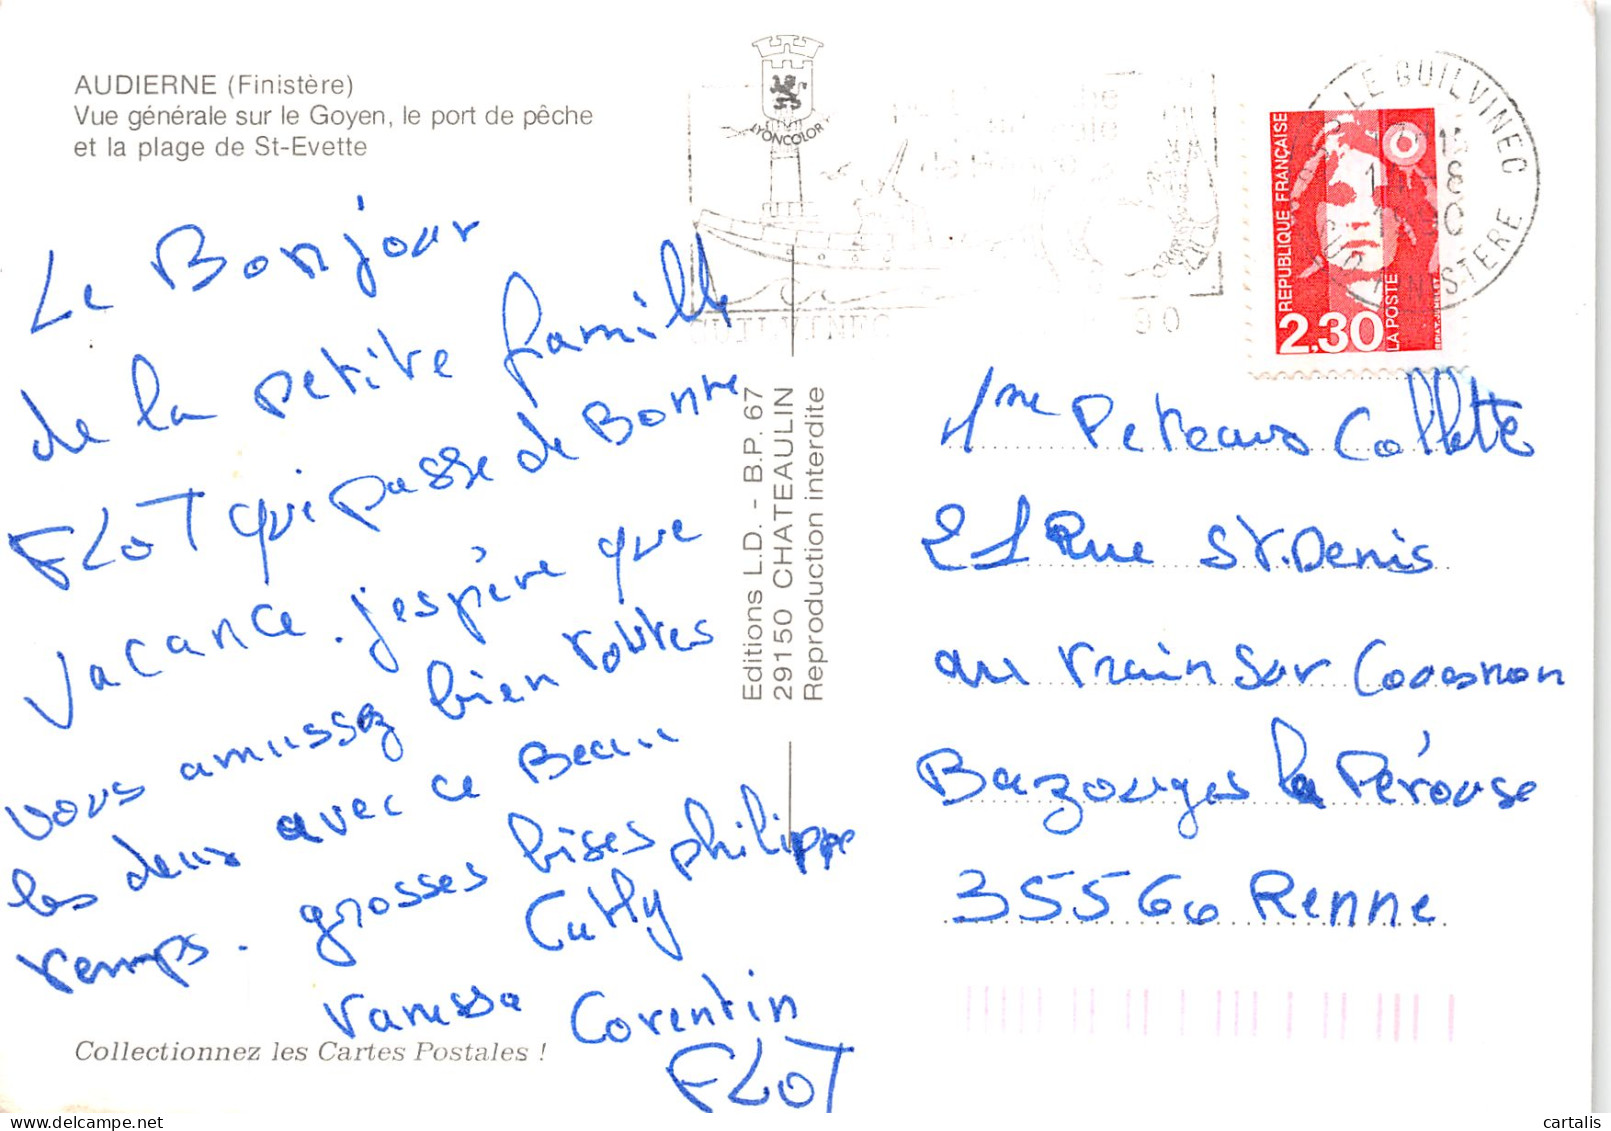 AUDIERNE (Finistère)
Vue générale sur le Goyen, le port de pêche
et la plage de St-Evette
Le Bonjour
de la petite famille
FLOT qui passe de Bonne
Vacance. j'espère que
vous amussez bien toutes
les deux avec ce Beau
temps. grosses bises philippe
Cathy
Vanessa Corentin
FLOT
Collectionnez les Cartes Postales !
LYONCOLOR
GUILVINEC
Editions L.D. - B.P. 67
29150 CHATEAULIN
Reproduction interdite
LE GUILVINEC
SUD FINISTERE
REPUBLIQUE FRANÇAISE
2,30
LA POSTE
1me Peteaus Collette
21 Rue St.Denis
au train sur Couesnon
Bazouges la Pérouse
35560 Renne
cartalis
delcampe.net